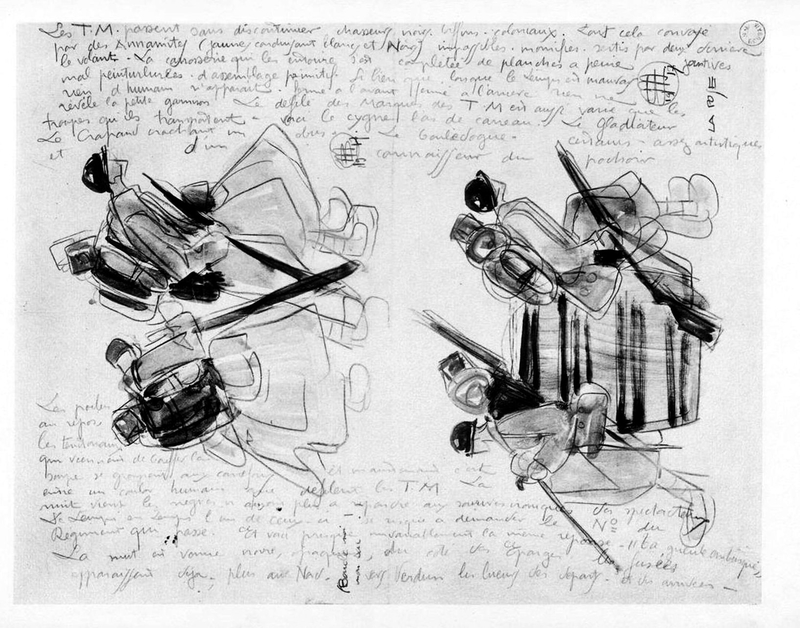 Les T.M. passent sans discontinuer chasseurs noirs. biffins. coloniaux. Tout cela convoyé
par des Annamites (jaunes conduisant blancs et Noirs) impassibles. momifiés. sertis par deux derrière
le volant. La carrosserie qui les entoure s'est complétée de planches à peine jointives
mal peinturlurées. d'assemblage primitif. Si bien que lorsque le temps est mauvais
rien d'humain n'apparait. fermé à l'avant fermé à l'arrière rien ne
révèle la petite garnison Le défilé des Marques des T M est aussi varié que les
troupes qu'ils transportent - voici le cygne, l'as de carreau. Le Gladiateur
Le Crapaud crachant un obus - Le Bouledogue. certains - assez artistiques
et d'un connaisseur du pochoir
Les poilus
au repos
les territoriaux
qui viennent de la
soupe se groupent aux carrefours et maintenant c'est
entre un couloir humain que défilent les T.M La
nuit vient les nègres n'ayons plus à répondre aux sourires ironiques des spectateurs
De temps en temps l'un de ceux-ci se risque à demander le No du
Régiment qui passe. Et voici presque invariablement la même réponse -
La nuit est venue noire, opaque, du côté des Eparges les fusées
apparaissent déjà, plus au Nord. vers Verdun les lueurs des départs - et des arrivées -